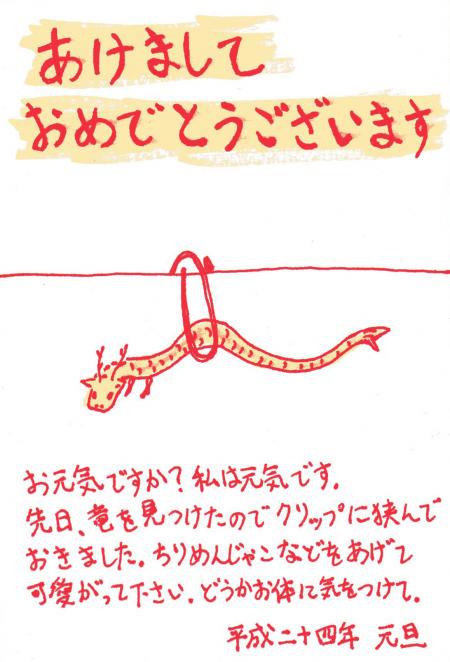 あけまして
おめでとうございます
お元気ですか？私は元気です。
先日、竜を見つけたのでクリップに挟んで
おきました。ちりめんじゃこなどをあげて
可愛がって下さい。どうかお体に気をつけて。
平成二十四年 元旦